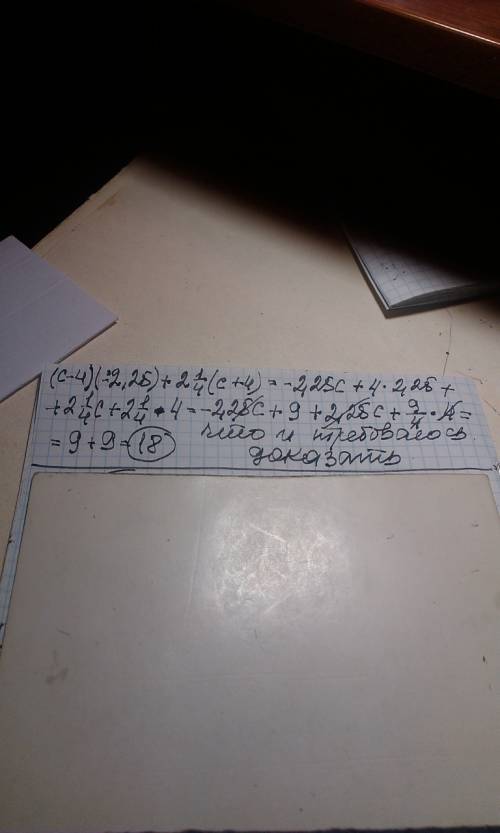 (c-4)(-2,25)+2 1/4(c+4)=-2,25c+4·2,25+
+2 1/4c+2 1/4·4=-2,25c+9+2,25c+9/4·4=
=9+9=18 что и требовалось
доказать